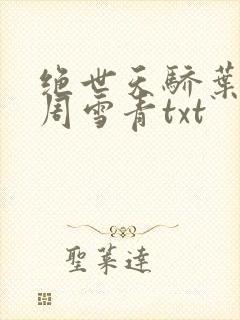 绝世天骄葉
周雪青txt
聖萊達